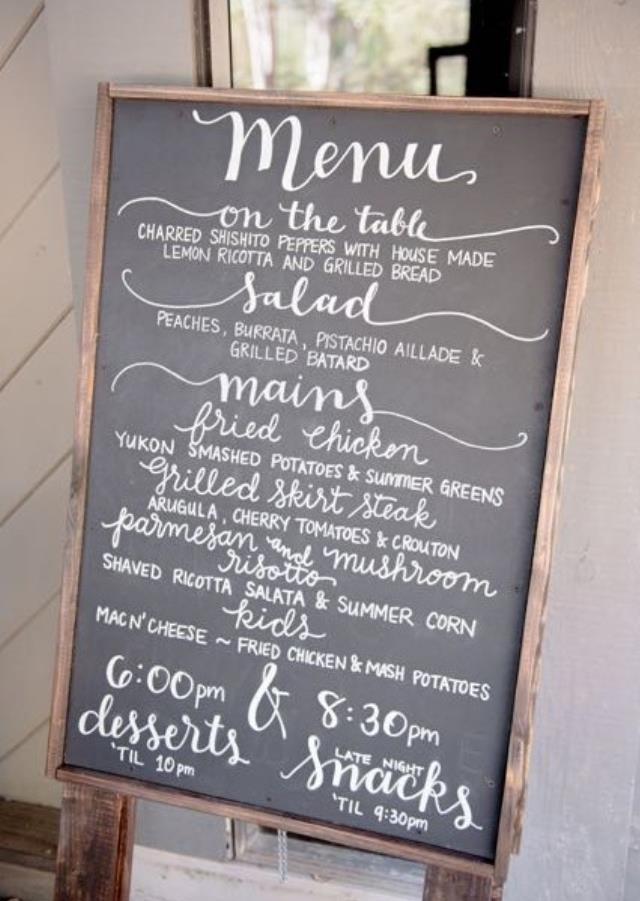 Menu
on the table
CHARRED SHISHITO PEPPERS WITH HOUSE MADE
LEMON RICOTTA AND GRILLED BREAD
Salad
PEACHES, BURRATA, PISTACHIO AILLADE &
GRILLED BATARD
mains
fried chicken
YUKON SMASHED POTATOES & SUMMER GREENS
Grilled Skirt Steak
ARUGULA, CHERRY TOMATOES & CROUTON
parmesan and mushroom
risotto
SHAVED RICOTTA SALATA & SUMMER CORN
kids
MAC N' CHEESE ~ FRIED CHICKEN & MASH POTATOES
6:00pm & 8:30pm
desserts
'TIL 10pm
LATE NIGHT
Snacks
'TIL 9:30pm